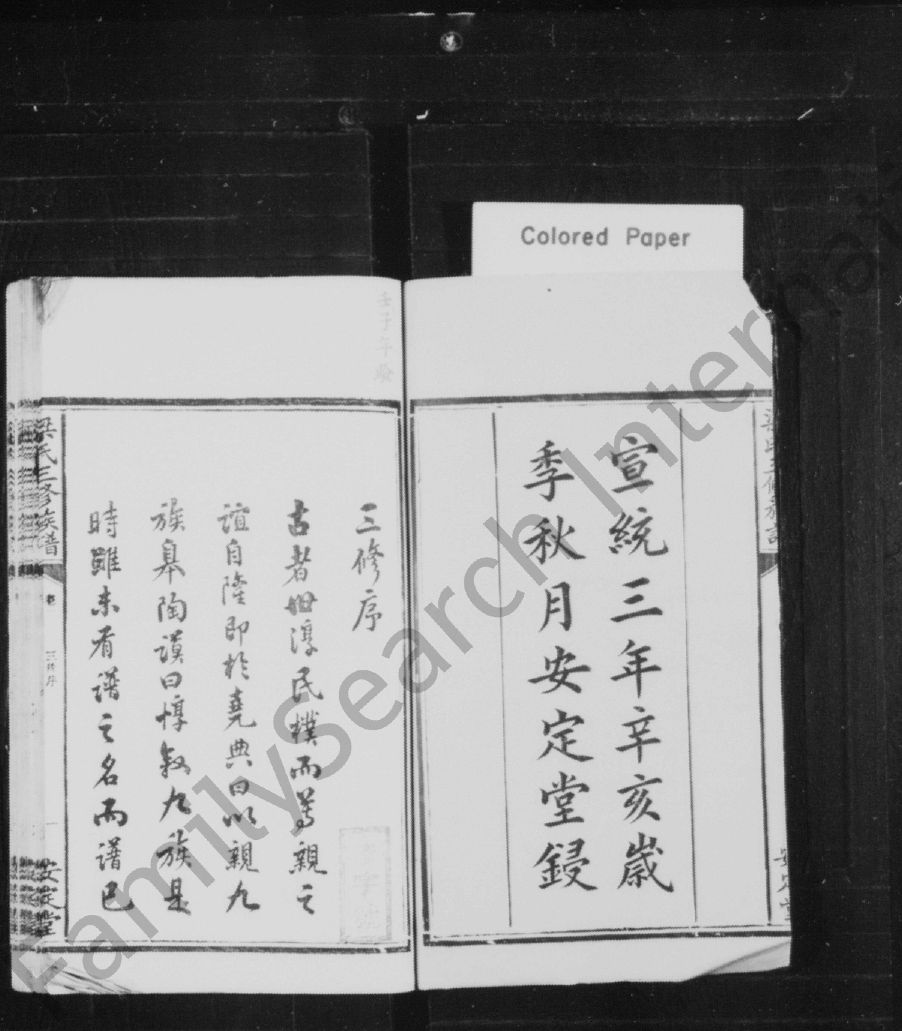 Colored Paper
宣統三年辛亥歲
季秋月安定堂鋟
壬子年發
三修序
古者世淳民樸而尊親之
誼自隆即於堯典曰以親九
族皋陶謨曰惇敘九族是
時雖未有譜之名而譜已
梁氏三修族譜
卷
三修序
安定堂
安定堂
FamilySearch International